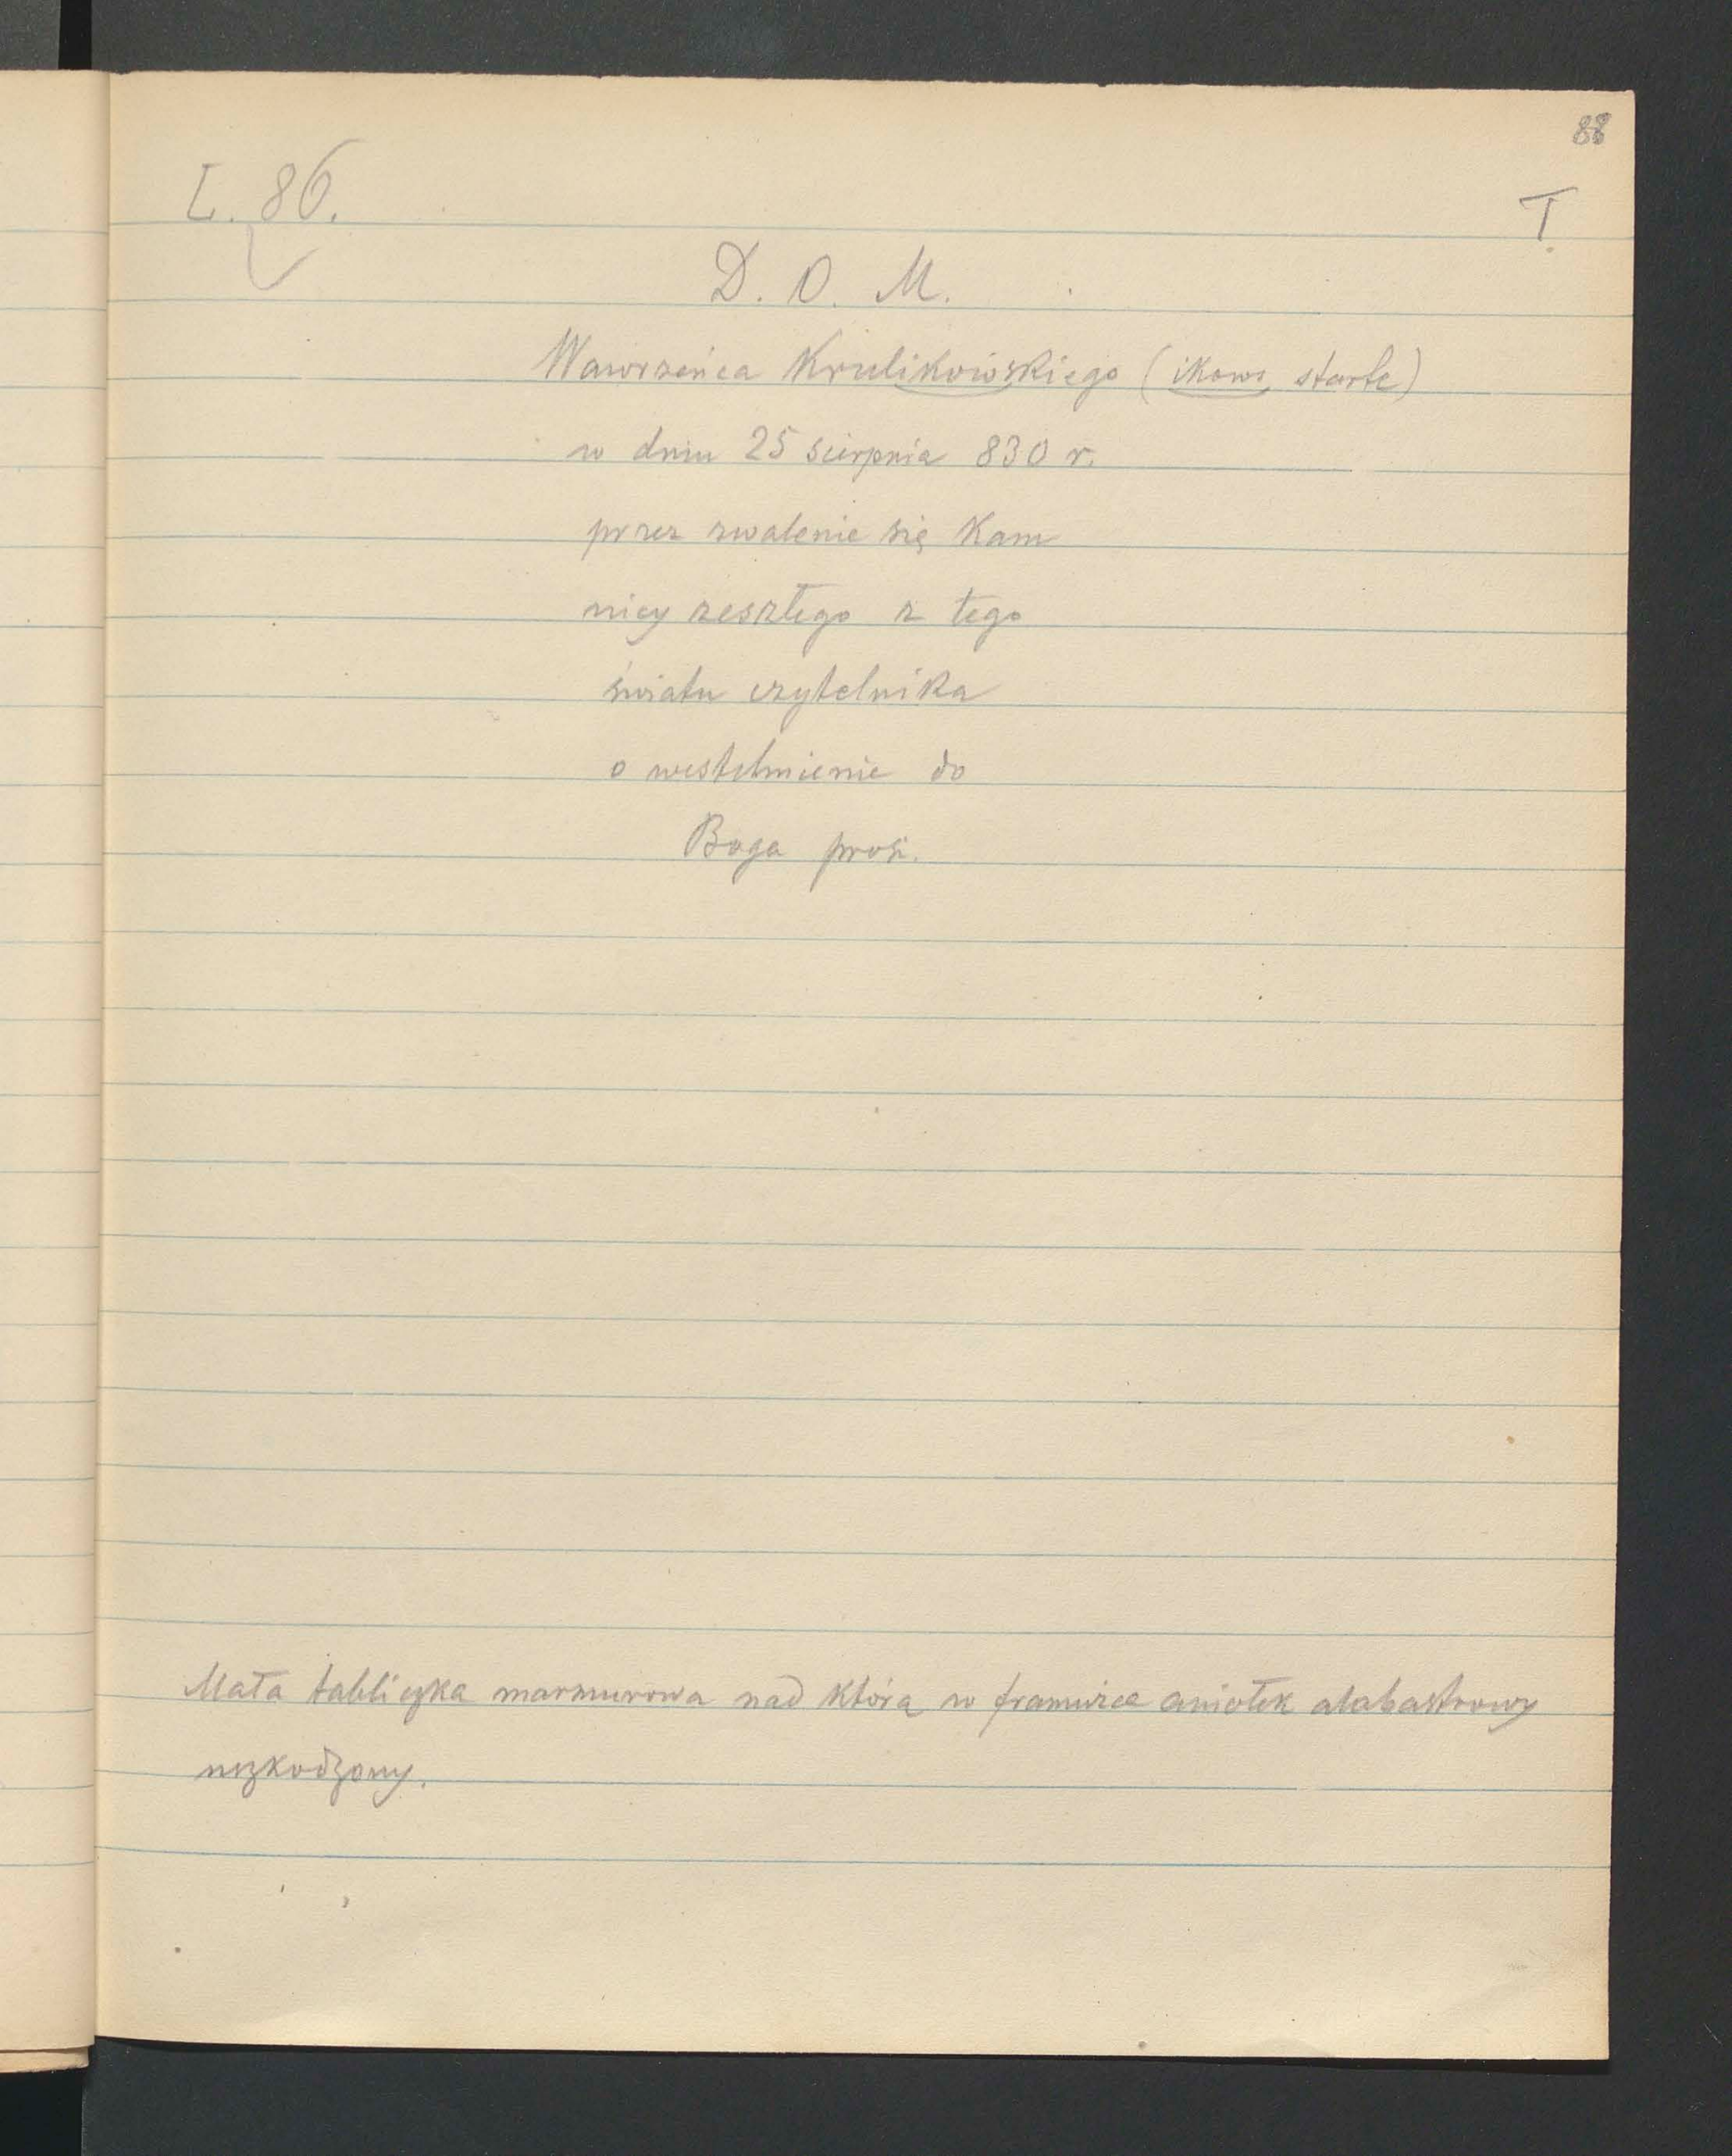 88
L. 86.
T.
D. O. M.
Wawrzeńca Krulikowskiego (ikows starte)
w dniu 25 sierpnia 830 r.
przez zwalenie się Kam
nicy zeszłego z tego
świata czytelnika
o westchnienie do
Boga prosi.
Mała tabliczka marmurowa nad którą w framudze aniołek alabastrowy
uszkodzony.